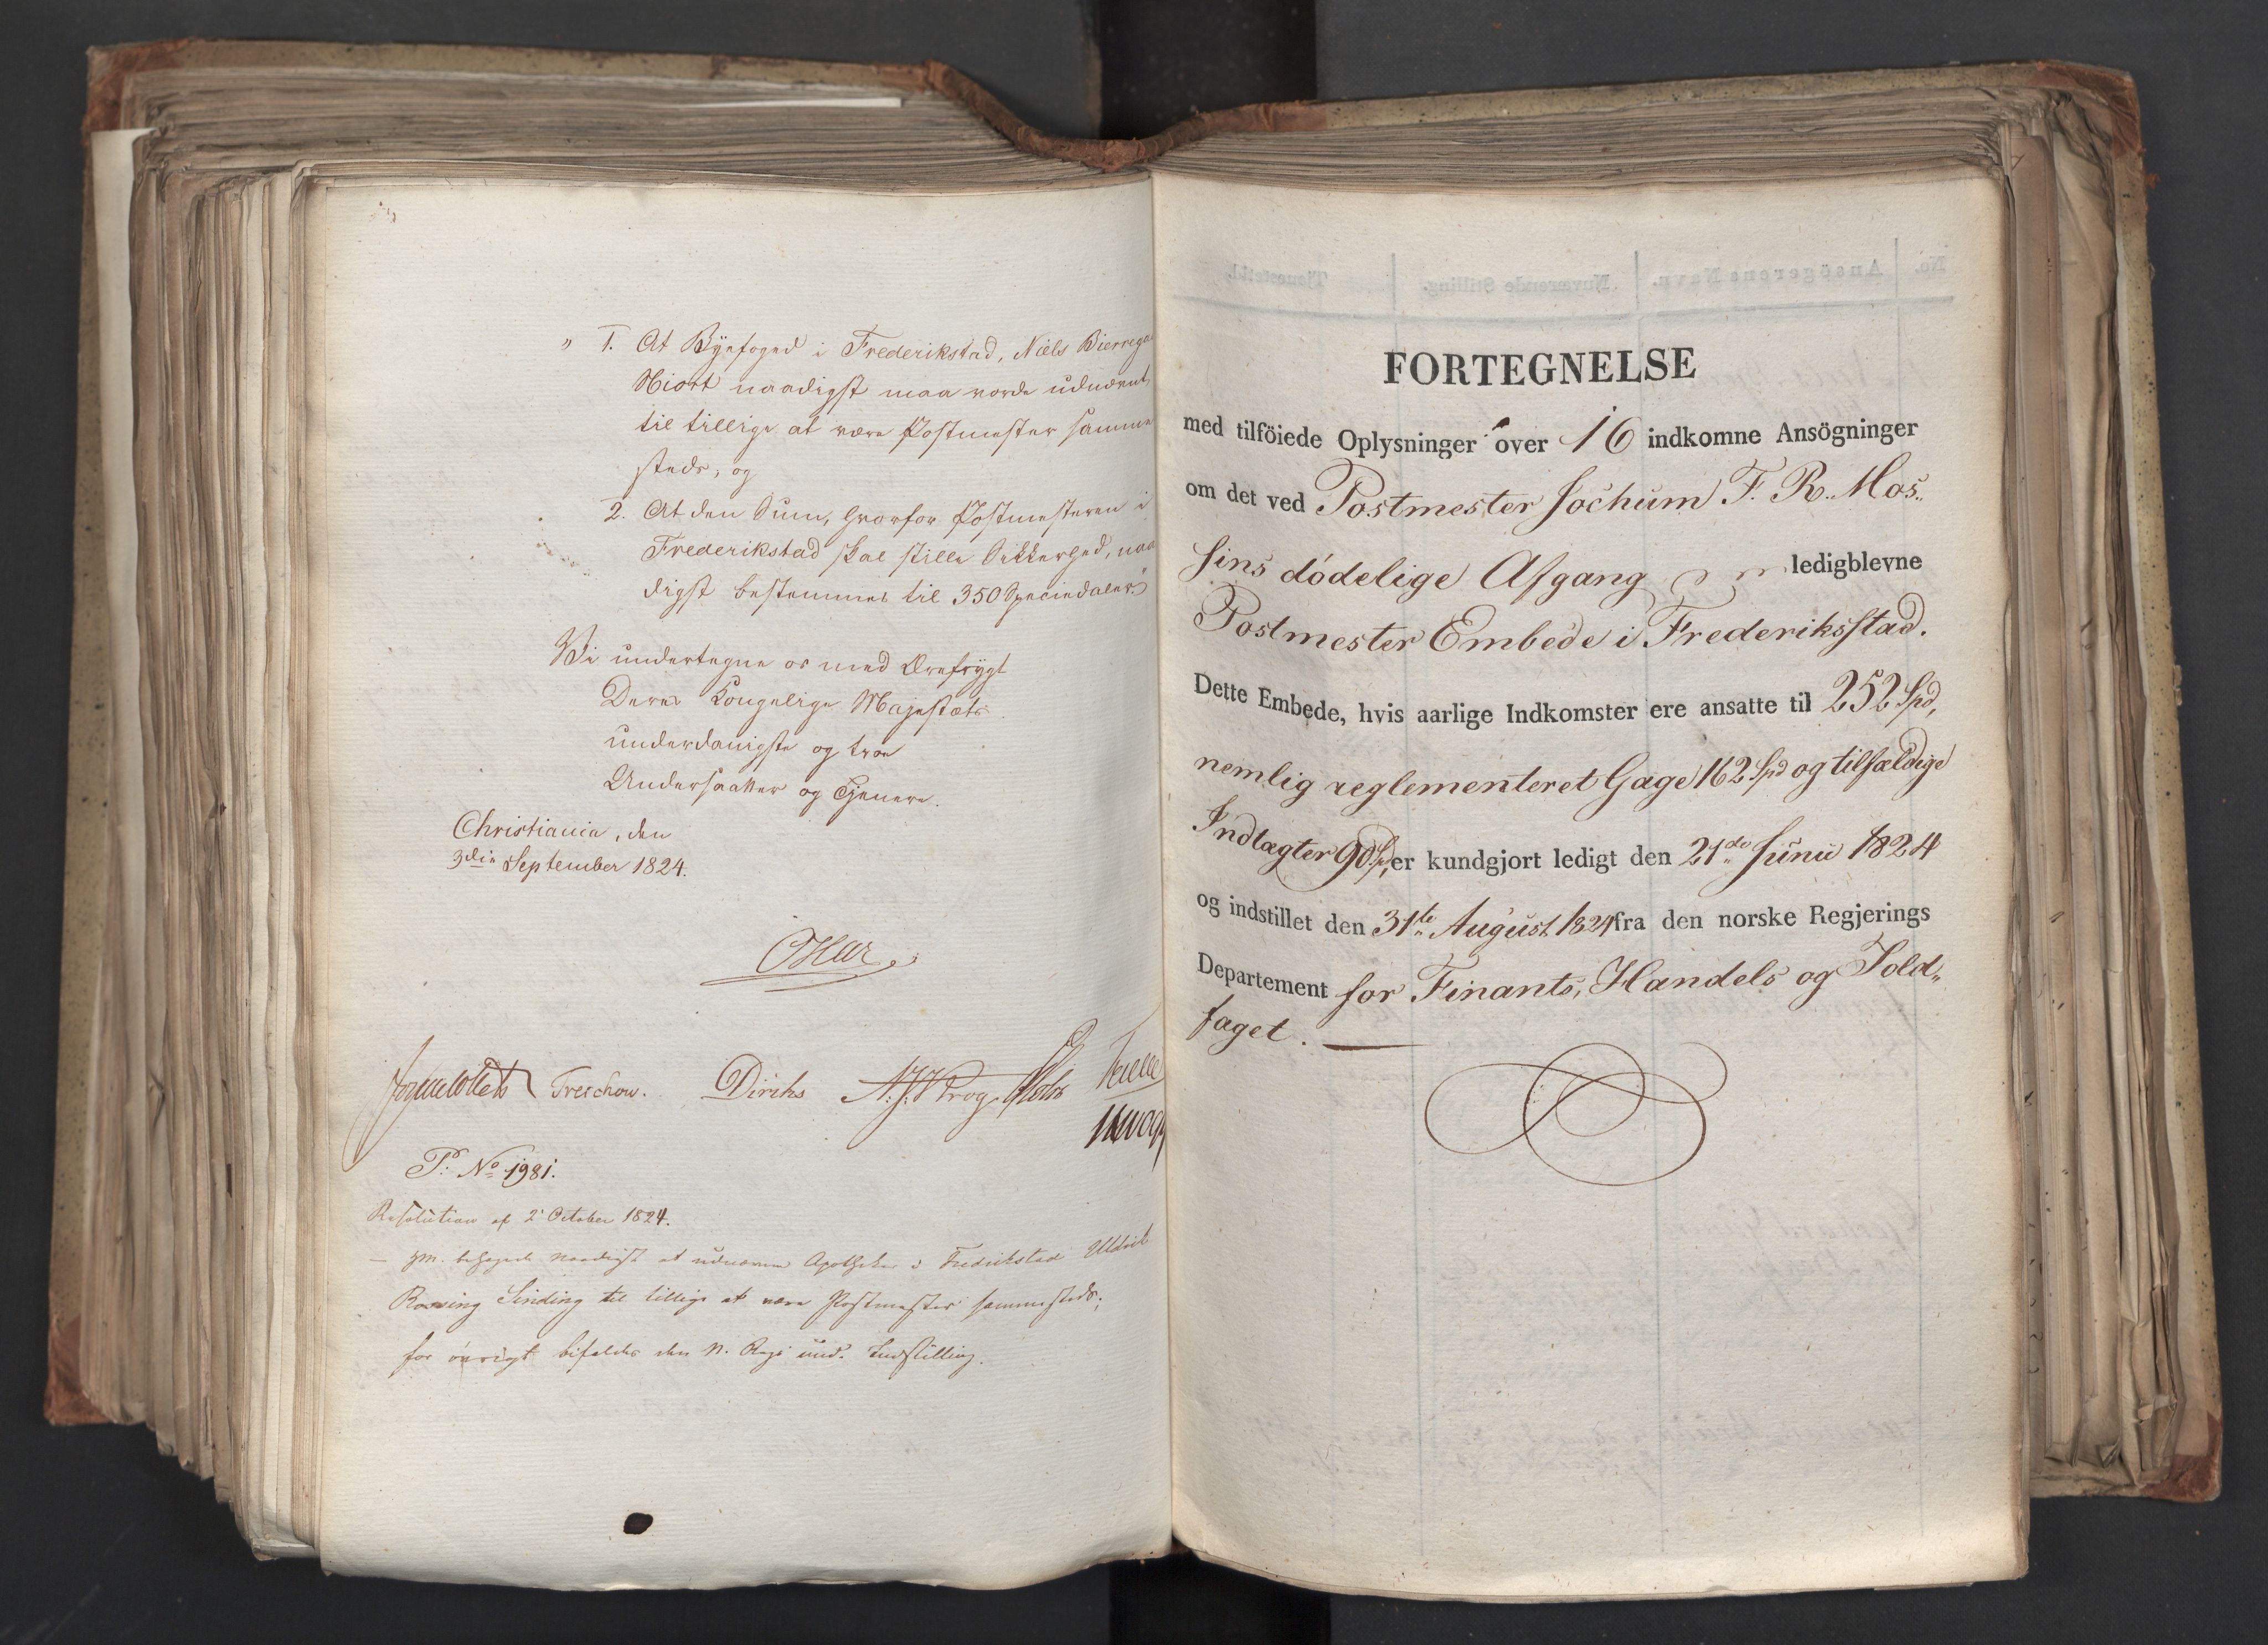 " 1. At Byefoged i Frederikstad, Niels Bierrega
Hiort naadigst maa vorde udnævnt
til tillige at være Postmester samme
steds; og
2. At den Sum, hvorfor Postmesteren i
Frederikstad skal stille Sikkerhed, naa
digst bestemmes til 350 Speciedaler."
Vi undertegne os med Ærefrygt
Deres Kongelige Majestæts
underdanigste og troe
Undersaatter og Tjenere.
Christiania, den
3die September 1824.
Oscar
Treschow. Diriks
P: No 1981.
Resolution af 2 October 1824.
— HM. behagede naadigst at udnævne Apotheker i Fredrikstad Uldrik
Sinding til tillige at være Postmester sammesteds;
for øvrigt bifaldes den N. Regs und. Indstilling.
No. Ansögerens Navn. Nuværende Stilling. Tjenestetid.
FORTEGNELSE
med tilföiede Oplysninger over 16 indkomne Ansögninger
om det ved Postmester Jochum F. R. Mos„
sins dödelige Afgang ledigblevne
Postmester Embede i Frederiksstad.
Dette Embede, hvis aarlige Indkomster ere ansatte til 252 Spd,
nemlig reglementeret Gage 162 Spd og tilfældige
Indtægter 90 Sp, er kundgjort ledigt den 21de Junii 1824
og indstillet den 31te August 1824 fra den norske Regjerings
Departement for Finants, Handels og Told„
faget.